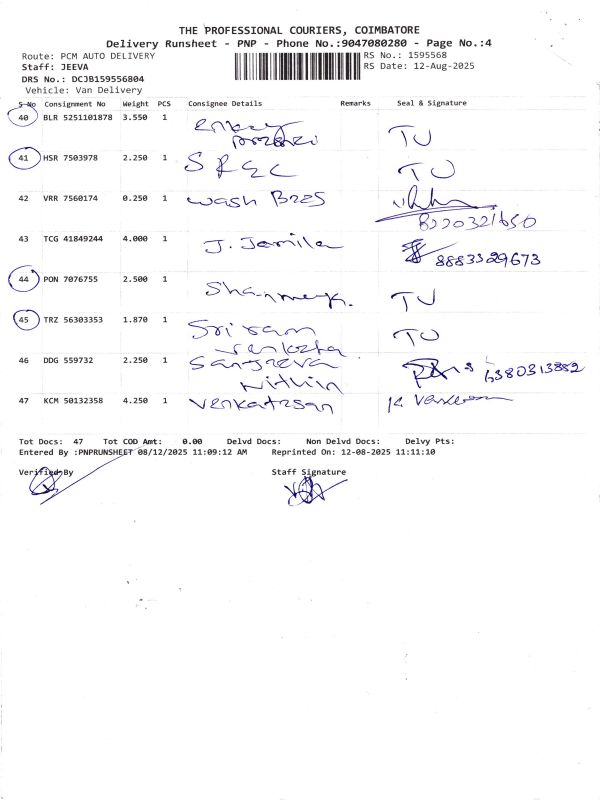 THE PROFESSIONAL COURIERS, COIMBATORE
Delivery Runsheet - PNP - Phone No.:9047080280 - Page No.:4
Route: PCM AUTO DELIVERY RS No.: 1595568
Staff: JEEVA RS Date: 12-Aug-2025
DRS No.: DCJB159556804
Vehicle: Van Delivery
S No Consignment No Weight PCS Consignee Details Remarks Seal & Signature
40 BLR 5251101878 3.550 1 TU
41 HSR 7503978 2.250 1 SREC TU
42 VRR 7560174 0.250 1 wash Bzes
43 TCG 41849244 4.000 1 J. Jamila 8883329673
44 PON 7076755 2.500 1 TU
45 TRZ 56303353 1.870 1 Sri ram TU
venkata
46 DDG 559732 2.250 1 Sanjeeva 6380313882
Nithin
47 KCM 50132358 4.250 1 Venkatesan K.
Tot Docs: 47 Tot COD Amt: 0.00 Delvd Docs: Non Delvd Docs: Delvy Pts:
Entered By :PNPRUNSHEET 08/12/2025 11:09:12 AM Reprinted On: 12-08-2025 11:11:10
Verified By Staff Signature